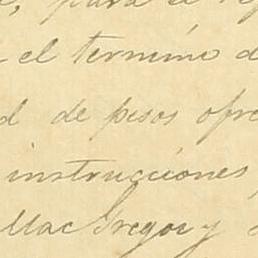 para el
el termino d
d de pesos ofre
instrucciones
MacGregor y